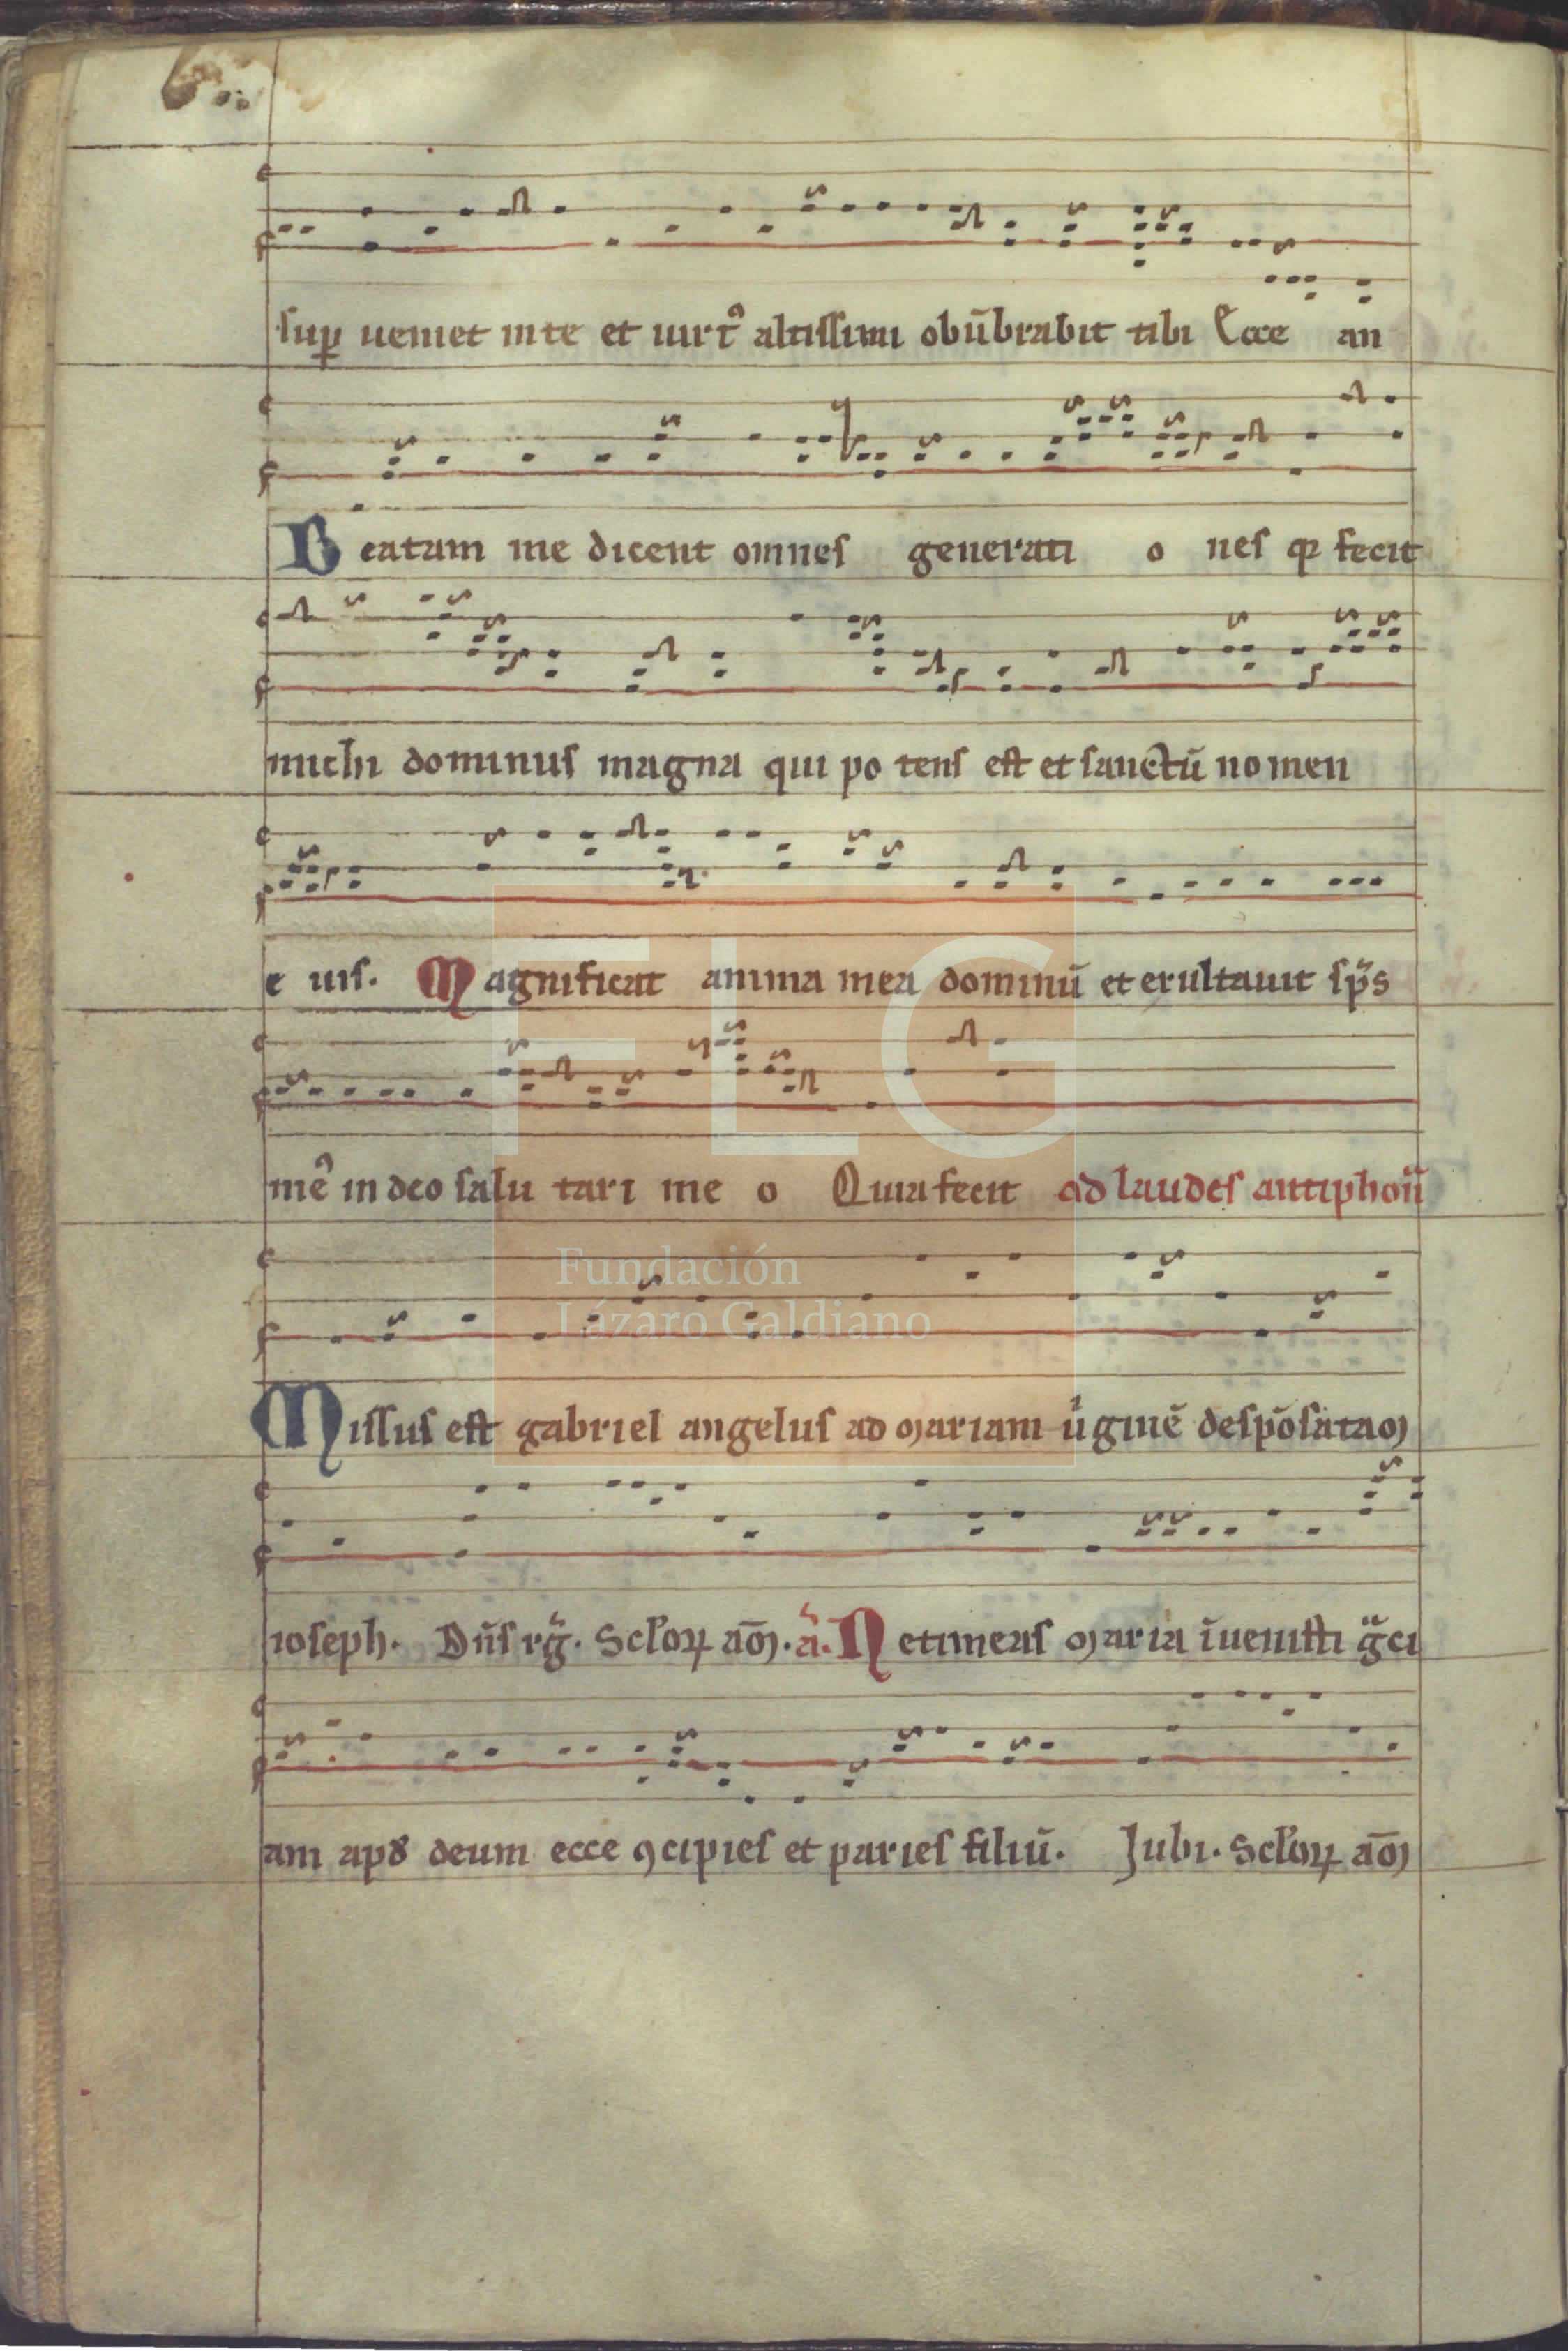 sup̲ ueniet in te et uirt᷒ altissimi obūbrabit tibi Ecce an
Beatam me dicent omnes generati o nes qꝛ fecit
michi dominus magna qui po tens est et sanctū no men
e ius. Magnificat anima mea dominū et exultauit sp̄s
me᷒ in deo salu tari me o Quia fecit ad laudes antiphoñ
Fundación
Lázaro Galdiano
Missus est gabriel angelus ad mariam ùginē despōsatam
ioseph. Dn̄s rg̃. Sc̄loꝝ am̄. ã. Netimeas maria īuenisti gͣci
am apd deum ecce ꝯcipies et paries filiū. Jubi. Sc̄loꝝ am̄
FLG